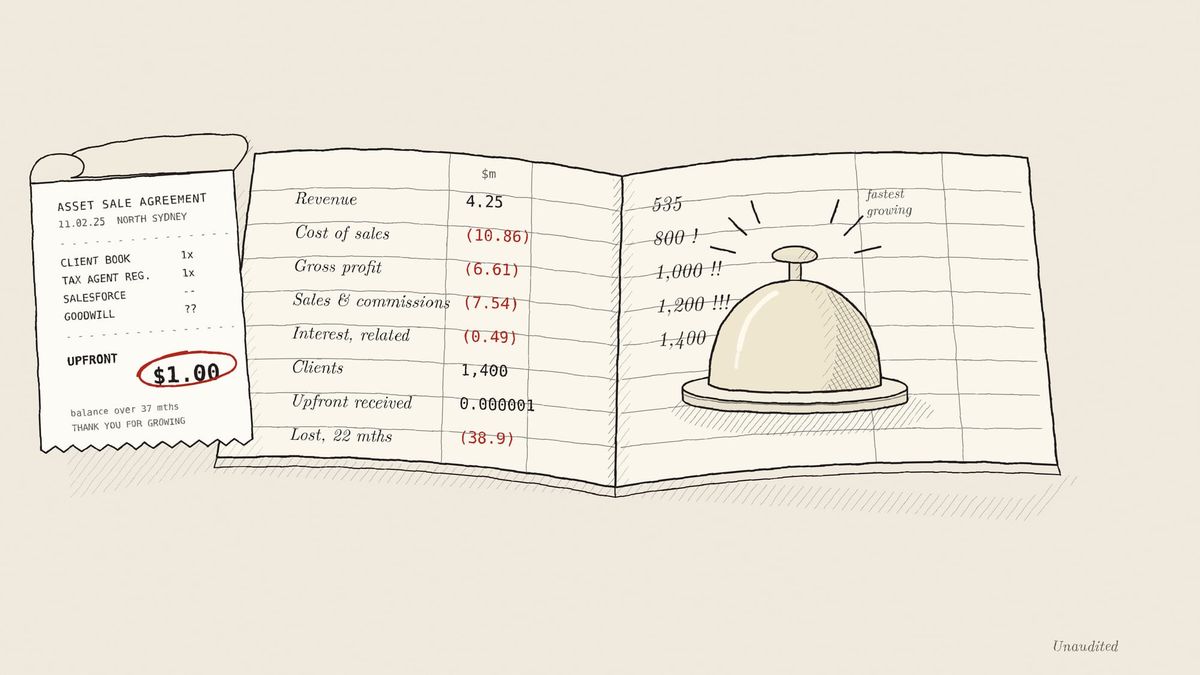 ASSET SALE AGREEMENT
11.02.25 NORTH SYDNEY
- - - - - - - - - - - - - - -
CLIENT BOOK 1x
TAX AGENT REG. 1x
SALESFORCE --
GOODWILL ??
- - - - - - - - - - - - - - -
UPFRONT $1.00
balance over 37 mths
THANK YOU FOR GROWING
$m
Revenue 4.25
Cost of sales (10.86)
Gross profit (6.61)
Sales & commissions (7.54)
Interest, related (0.49)
Clients 1,400
Upfront received 0.000001
Lost, 22 mths (38.9)
535
800 !
1,000 !!
1,200 !!!
1,400
fastest
growing
Unaudited